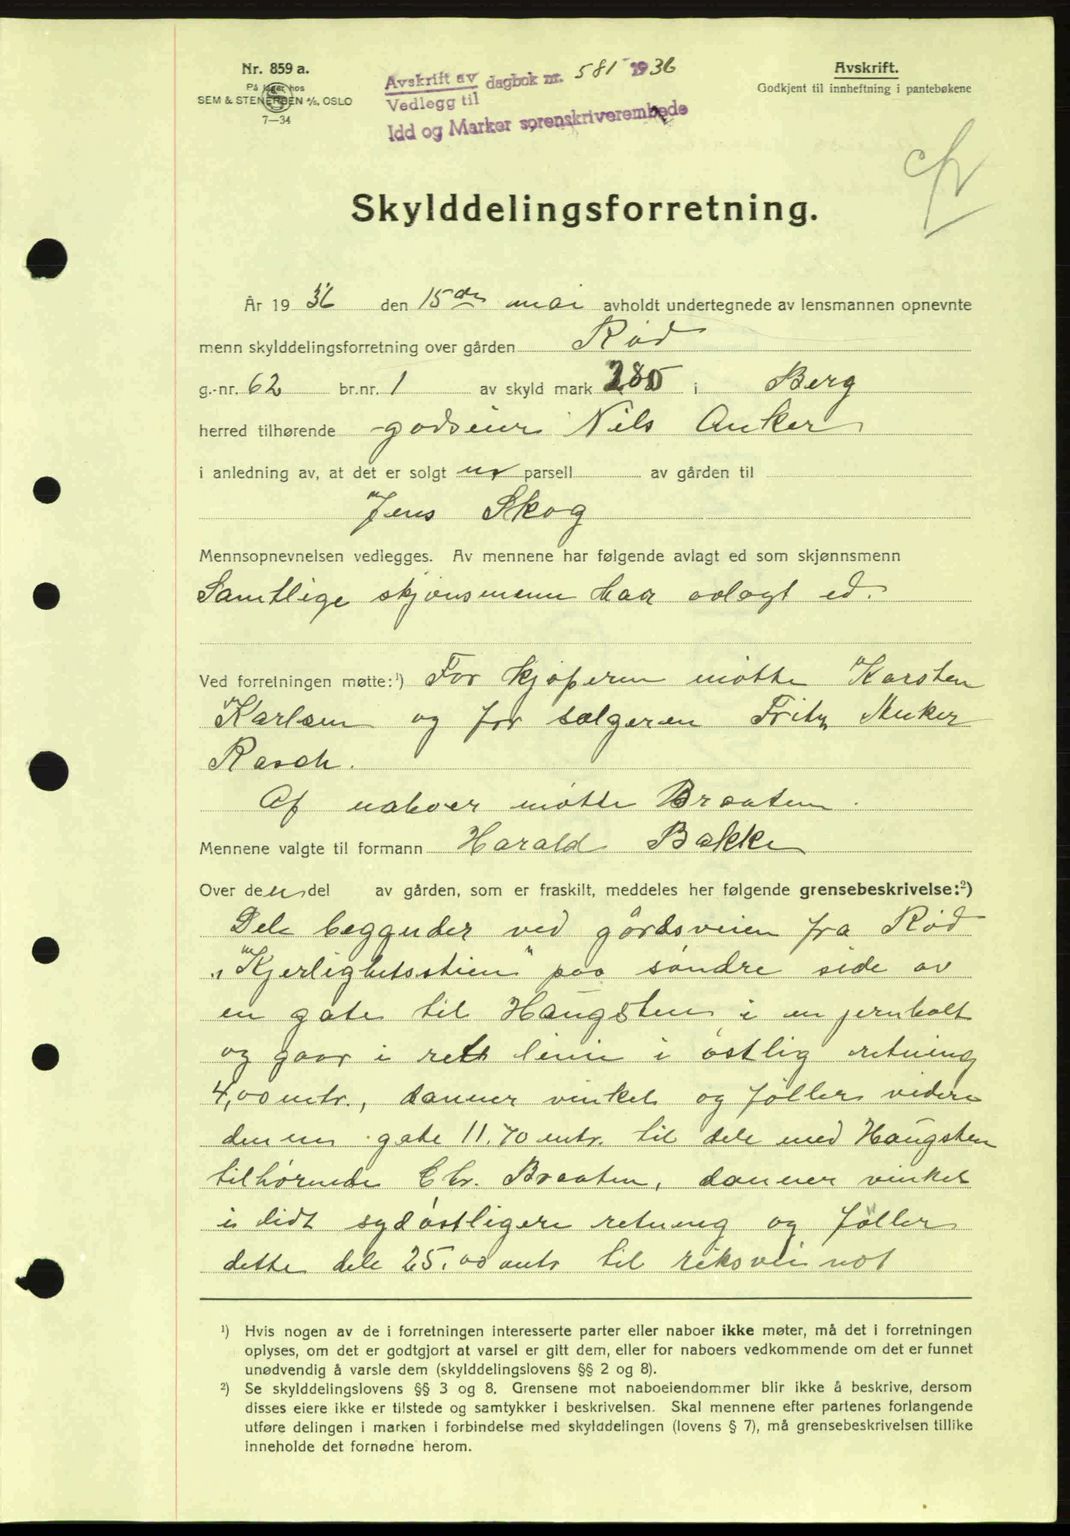 Nr. 859 a.
På lager hos
SEM & STENERSEN A/S, OSLO
7—34
Avskrift av dagbok nr. 581 1936
Vedlegg til
Idd og Marker sorenskriverembede
Avskrift.
Godkjent til innheftning i pantebøkene
Skylddelingsforretning.
År 1936 den 15de mai avholdt undertegnede av lensmannen opnevnte
menn skylddelingsforretning over gården Rød
g.-nr. 62 br.nr. 1 av skyld mark i Berg
herred tilhørende godseier Nils Anker
i anledning av, at det er solgt en parsell av gården til
Jens Skog
Mennsopnevnelsen vedlegges. Av mennene har følgende avlagt ed som skjønnsmenn
Samtlige skjønsmenn har avlagt ed.
Ved forretningen møtte:¹) For kjøperen møtte Karsten
Karlsen og for sælgeren Fritz Anker
Rasch.
Af naboer møtte Braaten.
Mennene valgte til formann Harald Bakke
Over den del av gården, som er fraskilt, meddeles her følgende grensebeskrivelse:²)
Dele begynder ved gårdsveien fra Rød
"Kjerlighetsstien" paa søndre side av
en gate til Haugsten i en jernbolt
og gaar i rett linie i østlig retning
4,00 mtr., danner vinkel og føller videre
denne gate 11.70 mtr. til dele med Haugsten
tilhørende Chr. Braaten, danner vinkel
i lidt sydøstligere retning og føller
dette dele 25.00 mtr til riksvei mot
¹) Hvis nogen av de i forretningen interesserte parter eller naboer ikke møter, må det i forretningen
oplyses, om det er godtgjort at varsel er gitt dem, eller for naboers vedkommende om det er funnet
unødvendig å varsle dem (skylddelingslovens §§ 2 og 8).
²) Se skylddelingslovens §§ 3 og 8. Grensene mot naboeiendommer blir ikke å beskrive, dersom
disses eiere ikke er tilstede og samtykker i beskrivelsen. Skal mennene efter partenes forlangende
utføre delingen i marken i forbindelse med skylddelingen (lovens § 7), må grensebeskrivelsen tillike
inneholde det fornødne herom.